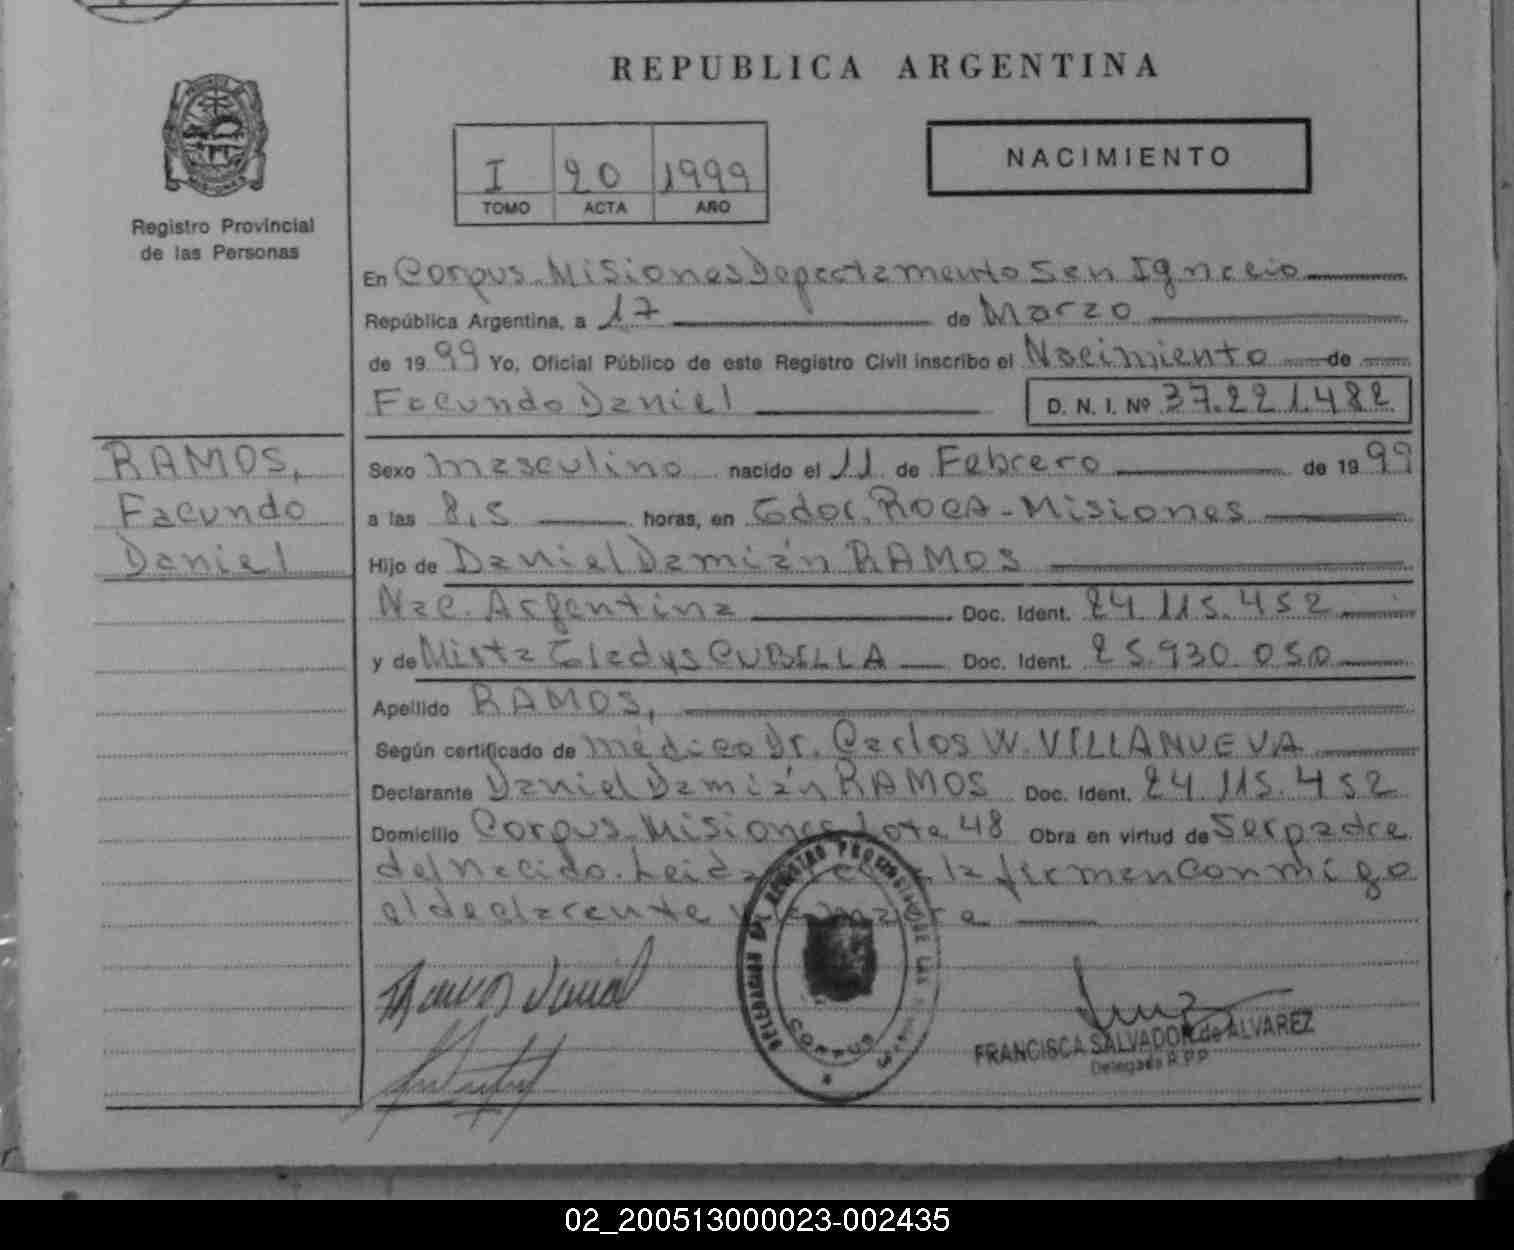 REPUBLICA ARGENTINA
I 20 1999
TOMO ACTA AÑO
NACIMIENTO
Registro Provincial
de las Personas
En Corpus-Misiones Departamento San Ignacio
República Argentina, a 17 de Marzo
de 1999 Yo, Oficial Público de este Registro Civil inscribo el Nacimiento de
Facundo Daniel D. N. I. Nº 37.221.482
RAMOS,
Facundo
Daniel
Sexo masculino nacido el 11 de Febrero de 1999
a las 8,5 horas, en Gdor. ROCA-Misiones
Hijo de Daniel Damián RAMOS
Nac. Argentina Doc. Ident. 24.115.452
y de Mirta Gladys CUBELLA Doc. Ident. 25.930.050
Apellido RAMOS,
Según certificado de médico Dr. Carlos W. VILLANUEVA
Declarante Daniel Damián RAMOS Doc. Ident. 24.115.452
Domicilio Corpus-Misiones Lote 48 Obra en virtud de Ser padre
del nacido. Leida la firman conmigo
el declarante
CORPUS
FRANCISCA SALVADOR de ALVAREZ
Delegada R.P.P
02_200513000023-002435